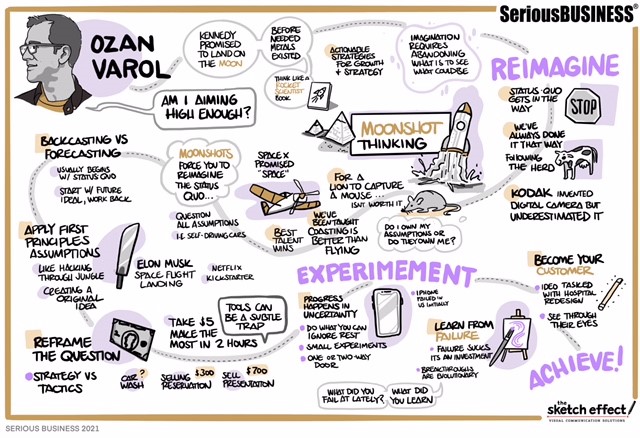 SeriousBUSINESS®
OZAN
VAROL
KENNEDY
PROMISED
TO LAND ON
THE MOON
BEFORE
NEEDED
METALS
EXISTED
THINK LIKE A
ROCKET
SCIENTIST
BOOK
ACTIONABLE
STRATEGIES
FOR GROWTH
+ STRATEGY
IMAGINATION
REQUIRES
ABANDONING
WHAT IS TO SEE
WHAT COULD BE
REIMAGINE
STATUS QUO
GETS IN THE
WAY
STOP
WE'VE
ALWAYS DONE
IT THAT WAY
FOLLOWING
THE HERD
KODAK INVENTED
DIGITAL CAMERA BUT
UNDERESTIMATED IT
AM I AIMING
HIGH ENOUGH?
MOONSHOT
THINKING
BACKCASTING VS
FORECASTING
USUALLY BEGINS
W/ STATUS QUO
START W/ FUTURE
IDEAL, WORK BACK
MOONSHOTS
FORCE YOU TO
REIMAGINE
THE STATUS
QUO...
QUESTION
ALL ASSUMPTIONS
I.E. SELF-DRIVING CARS
SPACE X
PROMISED
"SPACE"
FOR A
LION TO CAPTURE
A MOUSE...
ISN'T WORTH IT
BEST
TALENT
WINS
WE'VE
BEEN TAUGHT
COASTING IS
BETTER THAN
FLYING
DO I OWN MY
ASSUMPTIONS OR
DO THEY OWN ME?
APPLY FIRST
PRINCIPLES
ASSUMPTIONS
LIKE HACKING
THROUGH JUNGLE
CREATING A
ORIGINAL
IDEA
ELON MUSK
SPACE FLIGHT
LANDING
NETFLIX
KICKSTARTER
REFRAME
THE QUESTION
STRATEGY VS
TACTICS
TAKE $5
MAKE THE
MOST IN 2 HOURS
TOOLS CAN
BE A SUBTLE
TRAP
CAR ?
WASH
SELLING $300
RESERVATION
SELL $700
PRESENTATION
EXPERIMEMENT
PROGRESS
HAPPENS IN
UNCERTAINTY
DO WHAT YOU CAN
IGNORE REST
SMALL EXPERIMENTS
ONE OR TWO WAY
DOOR
IPHONE
FAILED IN
US INITIALLY
LEARN FROM
FAILURE
FAILURE SUCKS
IT'S AN INVESTMENT
BREAKTHROUGHS
ARE EVOLUTIONARY
WHAT DID YOU
FAIL AT LATELY?
WHAT DID
YOU LEARN
BECOME YOUR
CUSTOMER
IDEO TASKED
WITH HOSPITAL
REDESIGN
SEE THROUGH
THEIR EYES
ACHIEVE!
the
sketch effect/
VISUAL COMMUNICATION SOLUTIONS
SERIOUS BUSINESS 2021